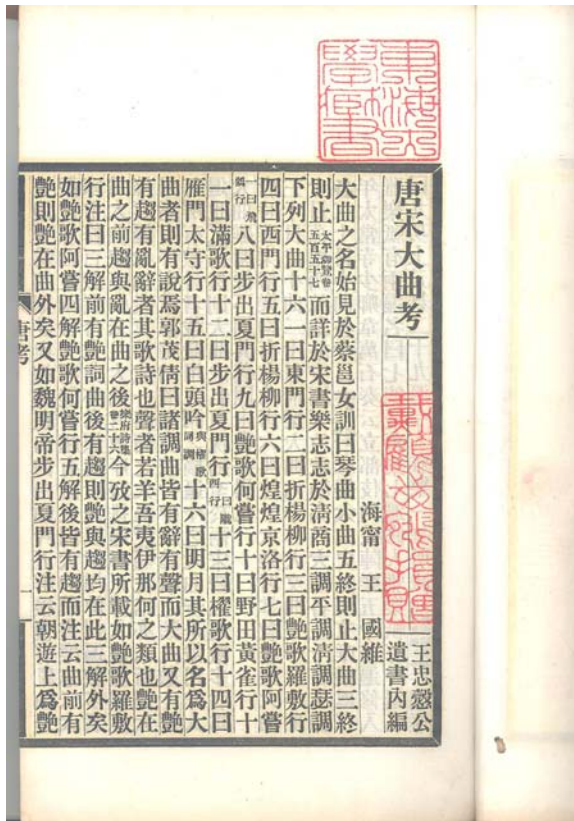 東海大
學藏書
唐宋大曲考
王忠愨公
遺書內編
海甯 王國維
大曲之名始見於蔡邕女訓曰琴曲小曲五終則止大曲三終
則止太平御覽卷五百五十七而詳於宋書樂志志於清商三調平調清調瑟調
下列大曲十六一曰東門行二曰折楊柳行三曰艷歌羅敷行
四曰西門行五曰折楊柳行六曰煌煌京洛行七曰艷歌阿嘗
一曰飛鵠行八曰步出夏門行九曰艷歌何嘗行十曰野田黃雀行十
一曰滿歌行十二曰步出夏門行一曰隴西行十三曰櫂歌行十四曰
雁門太守行十五曰白頭吟與櫂歌同調十六曰明月其所以名爲大
曲者則有說焉郭茂倩曰諸調曲皆有辭有聲而大曲又有艷
有趨有亂辭者其歌詩也聲者若羊吾夷伊那何之類也艷在
曲之前趨與亂在曲之後樂府詩集卷二十六今攷之宋書所載如艷歌羅敷
行注曰三解前有艷詞曲後有趨則艷與趨均在此三解外矣
如艷歌阿嘗四解艷歌何嘗行五解後皆有趨而注云曲前有
艷則艷在曲外矣又如魏明帝步出夏門行注云朝遊上爲艷
唐考
一